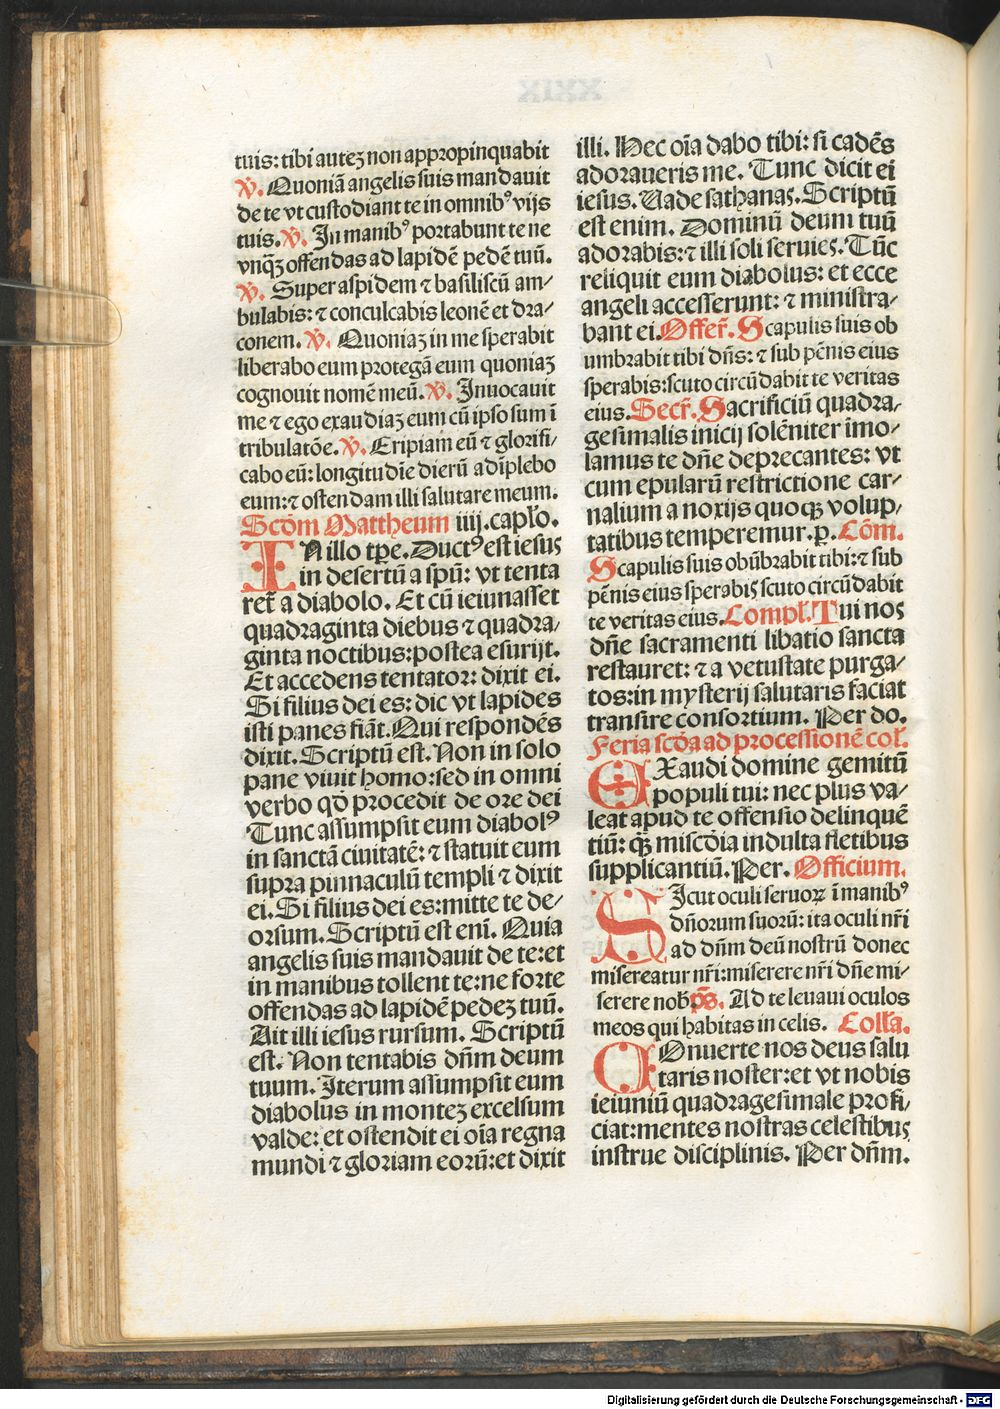 tuis: tibi autez non appropinquabit
℣. Quoniā angelis suis mandauit
de te vt custodiant te in omnibꝰ vijs
tuis. ℣. In manibꝰ portabunt te ne
vnq̄ꝫ offendas ad lapidē pedē tuū.
℣. Super aspidem ⁊ basiliscū am-
bulabis: ⁊ conculcabis leonē et dra/
conem. ℣. Quoniaz in me sperabit
liberabo eum protegā eum quoniaz
cognouit nomē meū. ℣. Inuocauit
me ⁊ ego exaudiaz eum cū ipso sum ī
tribulatōe. ℣. Eripiam eū ⁊ glorifi-
cabo eū: longitudīe dierū adīplebo
eum: ⁊ ostendam illi salutare meum.
Scdm̄ Mattheum iiij. capl̄o.
IN illo tp̄e. Ductꝰ est iesus
in desertū a spū: vt tenta
ret̄ a diabolo. Et cū ieiunasset
quadraginta diebus ⁊ quadra/
ginta noctibus: postea esurijt.
Et accedens tentator: dixit ei.
Si filius dei es: dic vt lapides
isti panes fiāt. Qui respondēs
dixit. Scriptū est. Non in solo
pane viuit homo: sed in omni
verbo qd̄ procedit de ore dei
Tunc assumpsit eum diabolꝰ
in sanctā ciuitatē: ⁊ statuit eum
supra pinnaculū templi ⁊ dixit
ei. Si filius dei es: mitte te de/
orsum. Scriptū est enī. Quia
angelis suis mandauit de te: et
in manibus tollent te: ne forte
offendas ad lapidē pedez tuū.
Ait illi iesus rursum. Scriptū
est. Non tentabis dn̄m deum
tuum. Iterum assumpsit eum
diabolus in montez excelsum
valde: et ostendit ei oīa regna
mundi ⁊ gloriam eorū: et dixit
illi. Hec oīa dabo tibi: si cadēs
adoraueris me. Tunc dicit ei
iesus. Uade sathanas. Scriptū
est enim. Dominū deum tuū
adorabis: ⁊ illi soli seruies. Tūc
reliquit eum diabolus: et ecce
angeli accesserunt: ⁊ ministra/
bant ei. Offer̄. Scapulis suis ob
umbrabit tibi dn̄s: ⁊ sub pēnis eius
sperabis: scuto circūdabit te veritas
eius. Secr̄. Sacrificiū quadra/
gesimalis inicij solēniter īmo/
lamus te dn̄e deprecantes: vt
cum epularū restrictione car/
nalium a noxijs quoqꝫ volup/
tatibus temperemur. p. Cōm.
Scapulis suis obūbrabit tibi: ⁊ sub
pēnis eius sperabis scuto circūdabit
te veritas eius. Compl̄. Tui nos
dn̄e sacramenti libatio sancta
restauret: ⁊ a vetustate purga/
tos: in mysterij salutaris faciat
transire consortium. Per do.
Feria scd̄a ad processionē col̄.
EXaudi domine gemitū
populi tui: nec plus va/
leat apud te offensio delinquē
tiū: q̄ꝫ miscd̄ia indulta fletibus
supplicantiū. Per. Officium.
SIcut oculi seruoꝝ ī manibꝰ
dn̄orum suorū: ita oculi nr̄i
ad dn̄m deū nostrū donec
misereatur nr̄i: miserere nr̄i dn̄e mi/
serere nob̄. ps̄. Ad te leuaui oculos
meos qui habitas in celis. Coll̄a.
COnuerte nos deus salu
taris noster: et vt nobis
ieiuniū quadragesimale profi/
ciat: mentes nostras celestibus
instrue disciplinis. Per dn̄m.
Digitalisierung gefördert durch die Deutsche Forschungsgemeinschaft - DFG